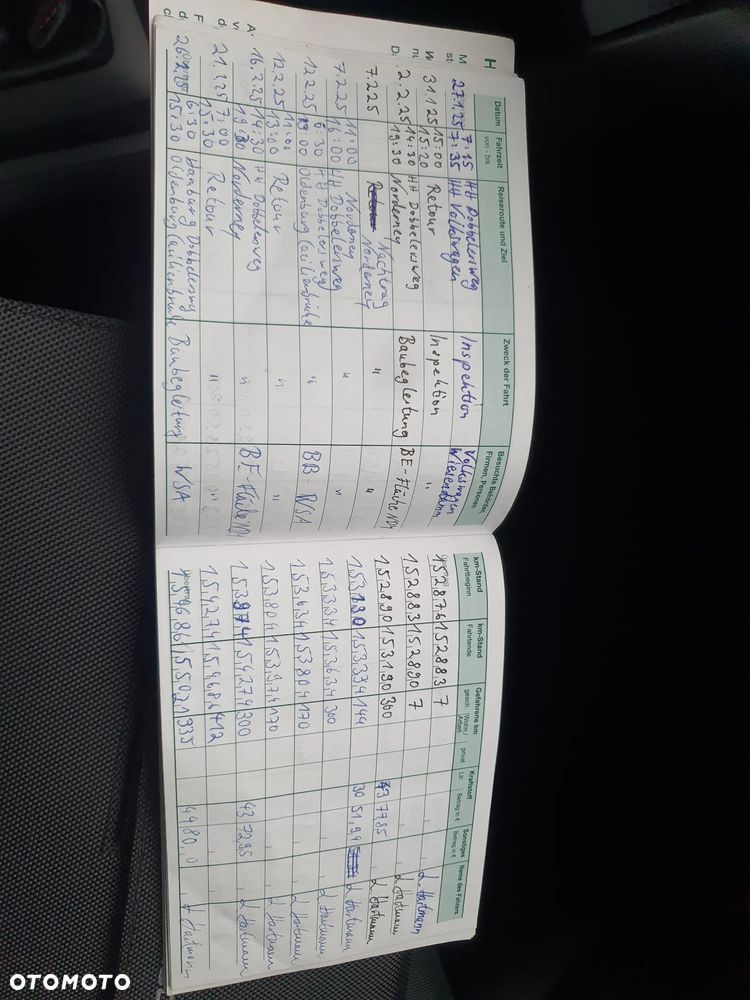 Datum Fahrzeit von - bis Reiseroute und Ziel Zweck der Fahrt Besuchte Behörden, Firmen, Personen km-Stand Fahrtbeginn km-Stand Fahrtende Gefahrene km gesch. Wohn-/Arbeit privat Kraftstoff Ltr. Betrag in € Sonstiges Betrag in € Name des Fahrers
27.1.25 7:15 HH Dobbelersweg Inspektion Volkswagen 152876 152883 7 L. Hartmann
7:35 HH Volkswagen Wiesendamm
31.1.25 15:00 Retour Inspektion " 152883 152890 7 L. Hartmann
15:20
2.2.25 14:30 HH Dobbelersweg Baubegleitung BE-Fläche 152890 153190 300 43 7785 L. Hartmann
19:30 Norderney
7.2.25 Nachtrag " " 153190 153334 144 30 51,99 L. Hartmann
Norderney
7.2.25 11:00 Norderney " " 153334 153634 300 L. Hartmann
16:00 HH Dobbelersweg
12.2.25 6:30 HH Dobbelersweg " BB-WSA 153634 153804 170 L. Hartmann
Oldenburg Cäcilienbrücke
12.2.25 11:00 Retour " " 153804 153974 170 L. Hartmann
13:00
16.2.25 14:30 HH Dobbelersweg " BE-Fläche 153974 154274 300 43 7295 L. Hartmann
Norderney
21.2.25 7:00 Retour " " 154274 154686 412 L. Hartmann
15:30
26.2.25 6:30 Hamburg Dobbelersweg Baubegleitung WSA 154686 155021 335 44 80,0 L. Hartmann
15:30 Oldenburg Cäcilienbrücke
OTOMOTO